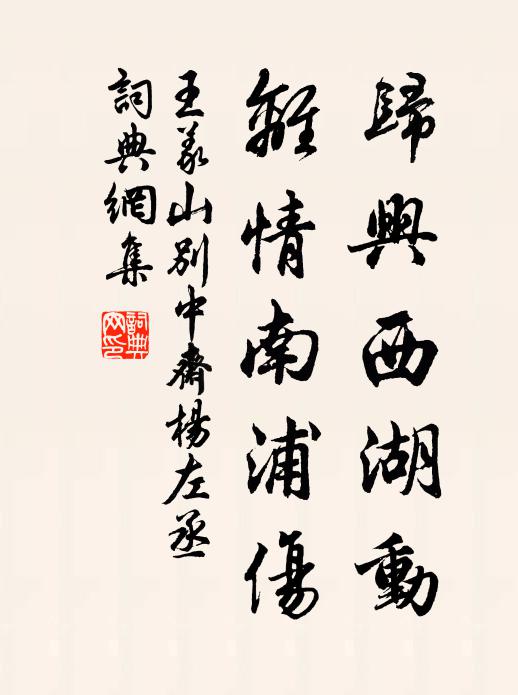 歸興西湖動
離情南浦傷
王義山別中齋楊左丞
詞典網集
詞典網印